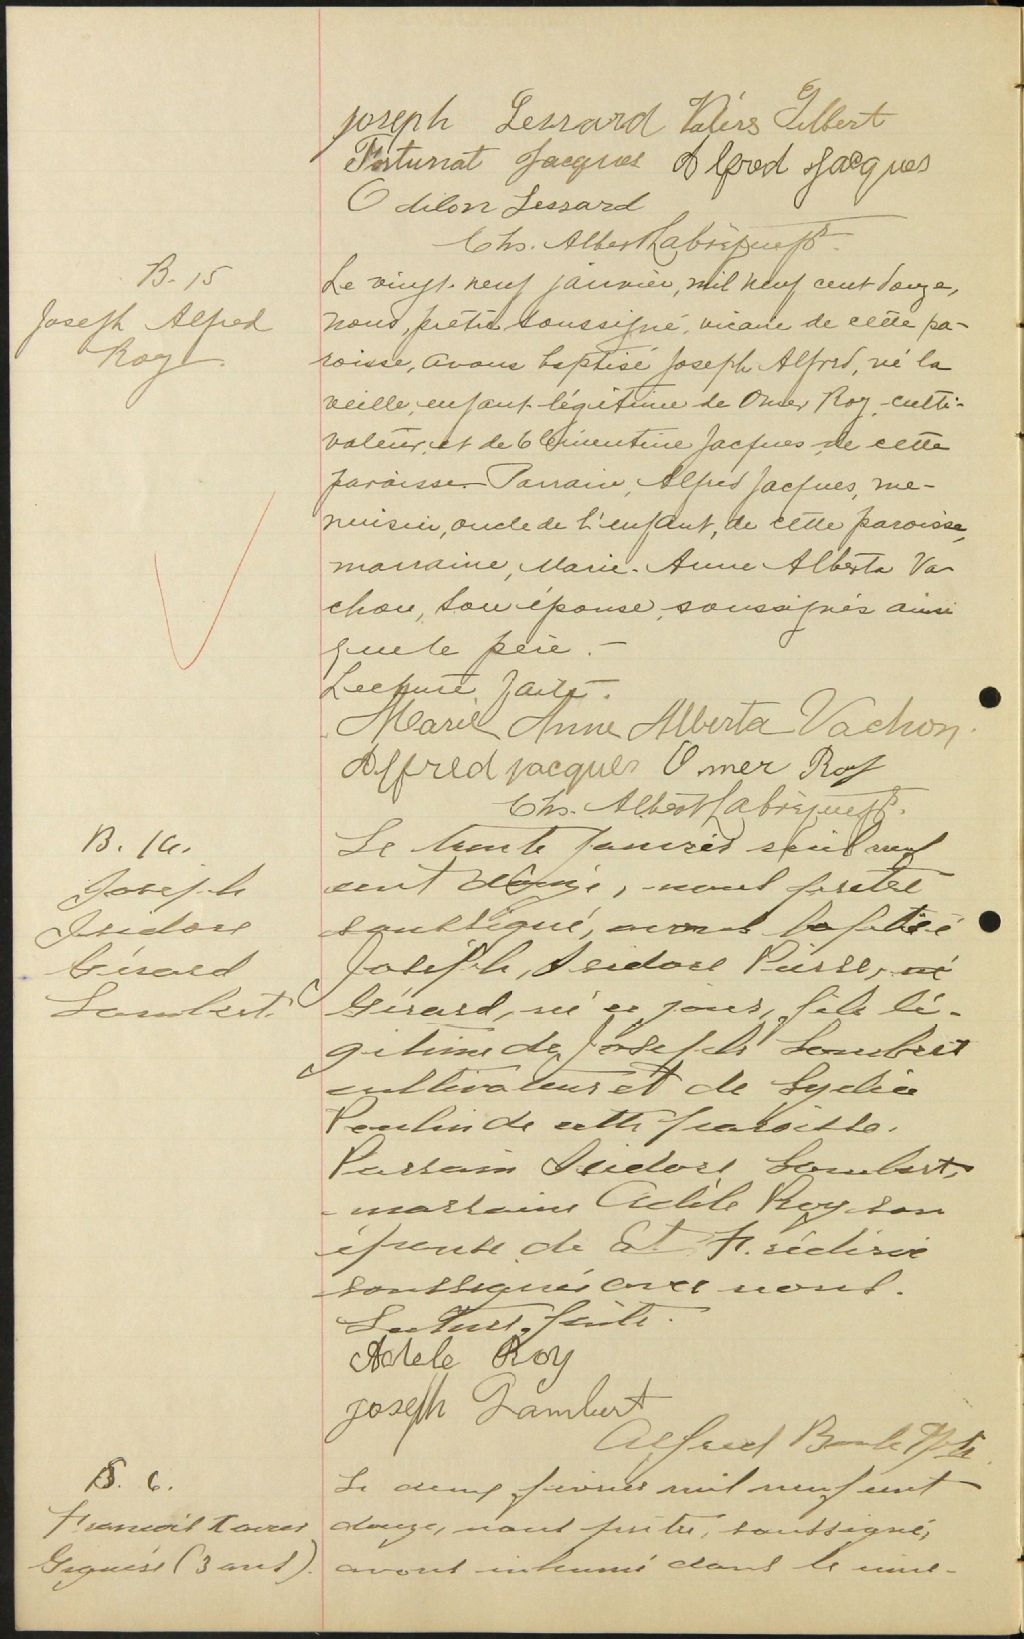 Joseph Lessard Valère Gilbert
Fortunat Jacques Alfred Jacques
Odilon Lessard
Chs. Albert Labrèque Ptr.
B. 15
Joseph Alfred
Roy
Le vingt-neuf janvier, mil neuf cent douze,
nous, prêtre soussigné, vicaire de cette pa-
roisse, avons baptisé Joseph Alfred, né la
veille, enfant légitime de Omer Roy, culti-
vateur, et de Clémentine Jacques de cette
paroisse. Parrain, Alfred Jacques, me-
nuisier, oncle de l'enfant, de cette paroisse,
marraine, Marie-Anne Alberta Va-
chon, son épouse, soussignés ainsi
que le père. -
Lecture faite.
Marie Anne Alberta Vachon.
Alfred Jacques Omer Roy
Chs. Albert Labrèque Ptr.
B. 16.
Joseph
Isidore
Gérard
Lambert.
Le trente janvier mil neuf
cent douze, nous prêtre
soussigné, avons baptisé
Joseph, Isidore Pierre, né
Gérard, né ce jour, fils lé-
gitime de Joseph Lambert
cultivateur et de Lydia
Poulin de cette paroisse.
Parrain Isidore Lambert,
marraine Adèle Roy son
épouse de St. Frédéric
soussignés avec nous.
Lecture faite.
Adele Roy
Joseph Lambert
Alfred Ptre
S. 6.
François Xavier
Giguère (3 ans).
Le deux février mil neuf cent
douze, nous prêtre, soussigné,
avons inhumé dans le cime-